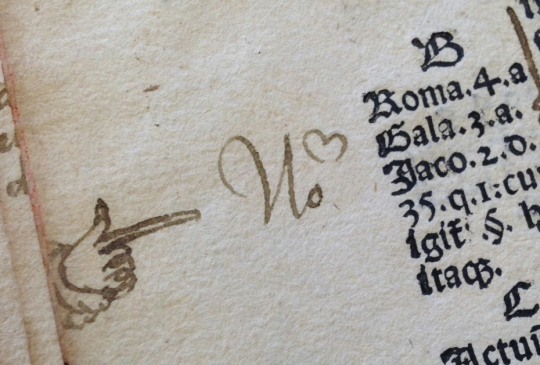 No
B
Roma.4.a
Gala.3.a.
Jaco.2.d.
35.q.1:cu
igit .§. h
itaqꝫ.
C
Actuū